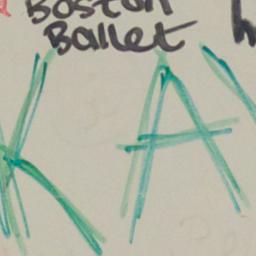 Boston
Ballet
KA